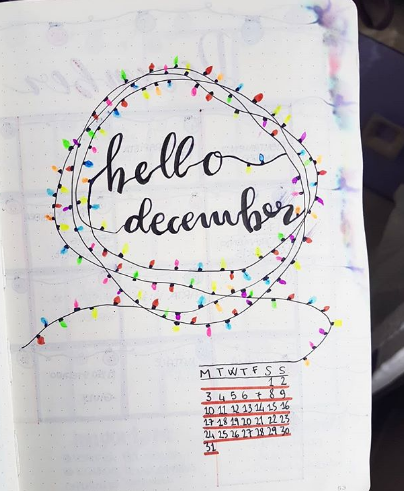 hello
december
M T W T F S S
1 2
3 4 5 6 7 8 9
10 11 12 13 14 15 16
17 18 19 20 21 22 23
24 25 26 27 28 29 30
31